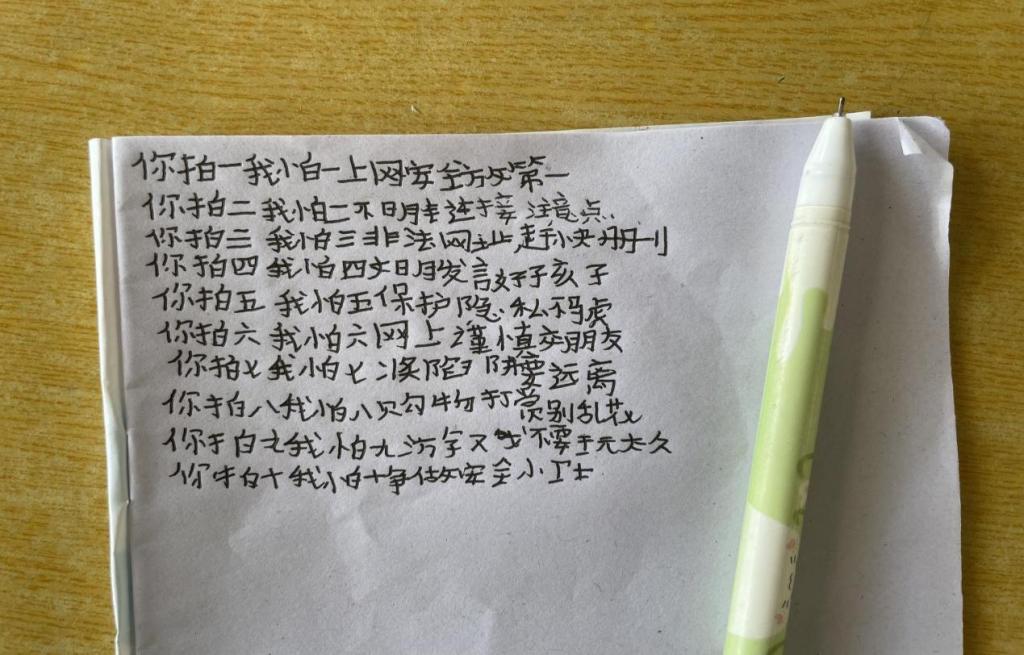 你拍一我怕一上网安全放第一
你拍二我怕二不明连接注意点
你拍三我怕三非法网址赶快删
你拍四我怕四文明发言好孩子
你拍五我怕五保护隐私不马虎
你拍六我怕六网上谨慎交朋友
你拍七我怕七陷阱要远离
你拍八我怕八购物打赏别乱花
你拍九我怕九游字又戏不要玩太久
你拍十我怕十争做安全小卫士